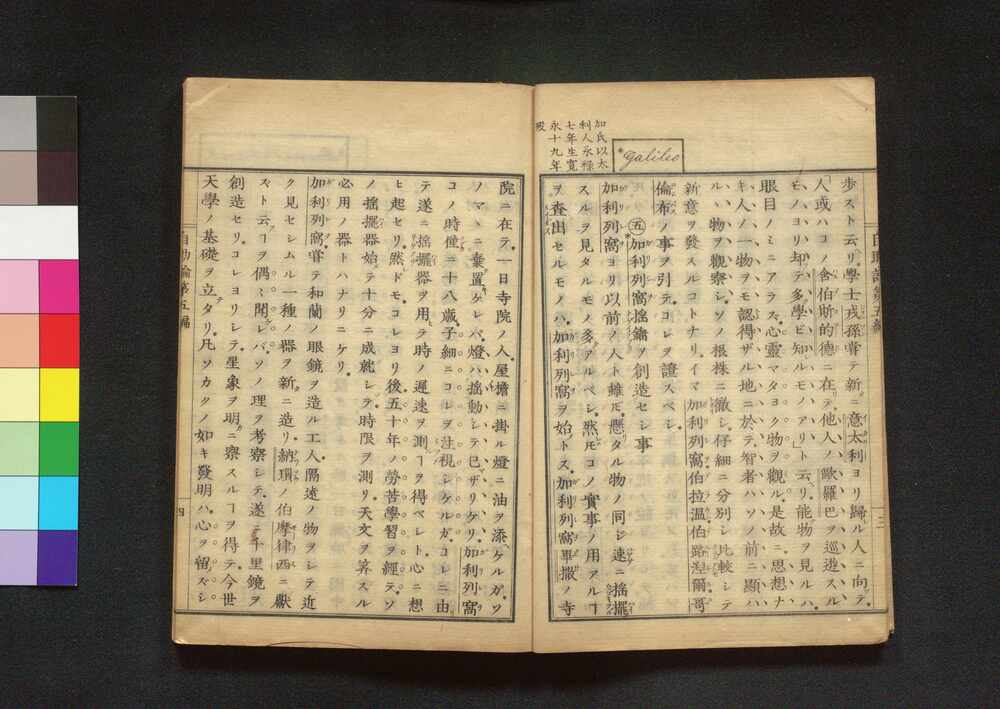 加氏以太
利人永禄
七年生寛
永十九年
歿
*galileo
歩スト云リ學士戎孫甞テ新ニ意太利ヨリ歸ル人ニ向テ
人或ハコノ舍伯斯的德ニ在テ他人ノ歐羅巴ヲ巡遊スル
モノヨリ却テ多學ビ知ルモノアリト云リ能物ヲ見ルハ
眼目ノミニアラズ心靈マタヨク物ヲ觀ル是故ニ思想ナ
キ人ノ一物ヲモ認得ザル地ニ於テ智者ハソノ前ニ顯ハ
ルヽ物ヲ觀察シソノ根株ニ徹シ仔細ニ分別シ比較シテ
新意ヲ發スルコトナリイマ加利列窩伯拉溫伯路湼爾哥
倫布ノ事ヲ引テコレヲ證スベシ
㊄加利列窩搖鐘ヲ創造セシ事
加利列窩ヨリ以前ノ人ト雖𪜈懸タル物ノ同ジ速ニ搖擺
スルヲ見タルモノ多アルベシ然𪜈コノ實事ノ用アルヿ
ヲ査出セルモノハ加利列窩ヲ始トス加利列窩畢撒ノ寺
自助論第五編
三
院ニ在テ一日寺院ノ人屋擔ニ掛ル燈ニ油ヲ添ケルガソ
ノマヽニ棄置ケレバ燈ハ搖動シテ已ザリケリ加利列窩
コノ時僅ニ十八歳子細ニコレヲ注視シケルガコレニ由
テ遂ニ搖擺器ヲ用テ時ノ遲速ヲ測ヿヲ得ベシト心ニ想
ヒ起セリ然ドモコレヨリ後五十年ノ勞苦學習ヲ經テソ
ノ搖擺器始テ十分ニ成就シテ時限ヲ測リ天文ヲ筭スル
必用ノ器トハナリニケリ
加利列窩甞テ和蘭ノ眼鏡ヲ造ル工人隔遠ノ物ヲシテ近
ク見セシムル一種ノ器ヲ新ニ造リ納瑣ノ伯摩律西ニ獻
ズト云ヿヲ偶〻聞シバソノ理ヲ考察シテ遂ニ千里鏡ヲ
創造セリコレヨリシテ星象ヲ明カニ察スルヿヲ得テ今世
天學ノ基礎ヲ立タリ凡ソカクノ如キ發明ハ心ヲ留ズシ
自助論第五編
四